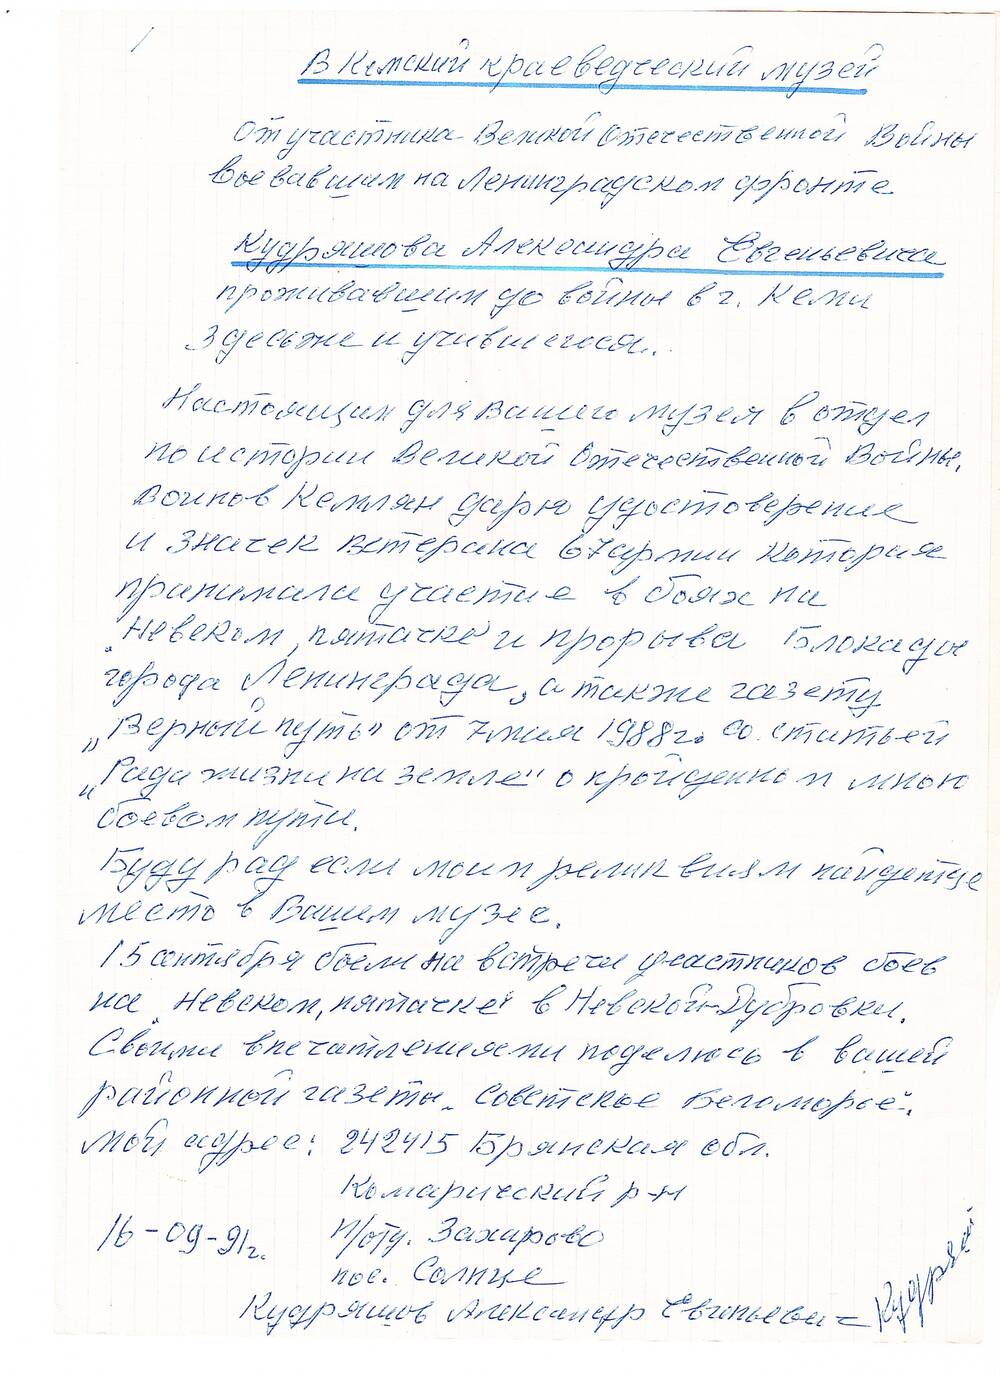 В Кемский краеведческий музей
От участника Великой Отечественной Войны
воевавшим на Ленинградском фронте
Кудряшова Александра Евгеньевича
проживавшим до войны в г. Кеми
Здесь же и учившегося.
Настоящим для вашего музея в отдел
по истории Великой Отечественной Войны.
Воинов Кемлян дарю удостоверение
и значек ветерана 67 армии которая
принимала участие в боях на
"Невском "пятачке" и прорыва Блокады
города Ленинграда, а также газету
"Верный путь" от 7 мая 1988 г. со статьей
"Ради жизни на земле" о пройденном мною
боевом пути.
Буду рад если моим реликвиям найдется
место в Вашем музее.
15 сентября были на встречи участников боев
на "Невском "пятачке" в Невской-Дубровки.
Своими впечатлениями поделюсь в вашей
районной газеты "Советское Беломорье".
Мой адрес: 242415 Брянская обл.
Комаричский р-н
16-09-91г. п/отд. Захарово
пос. Солнце
Кудряшов Александр Евгеньевич - Кудряш